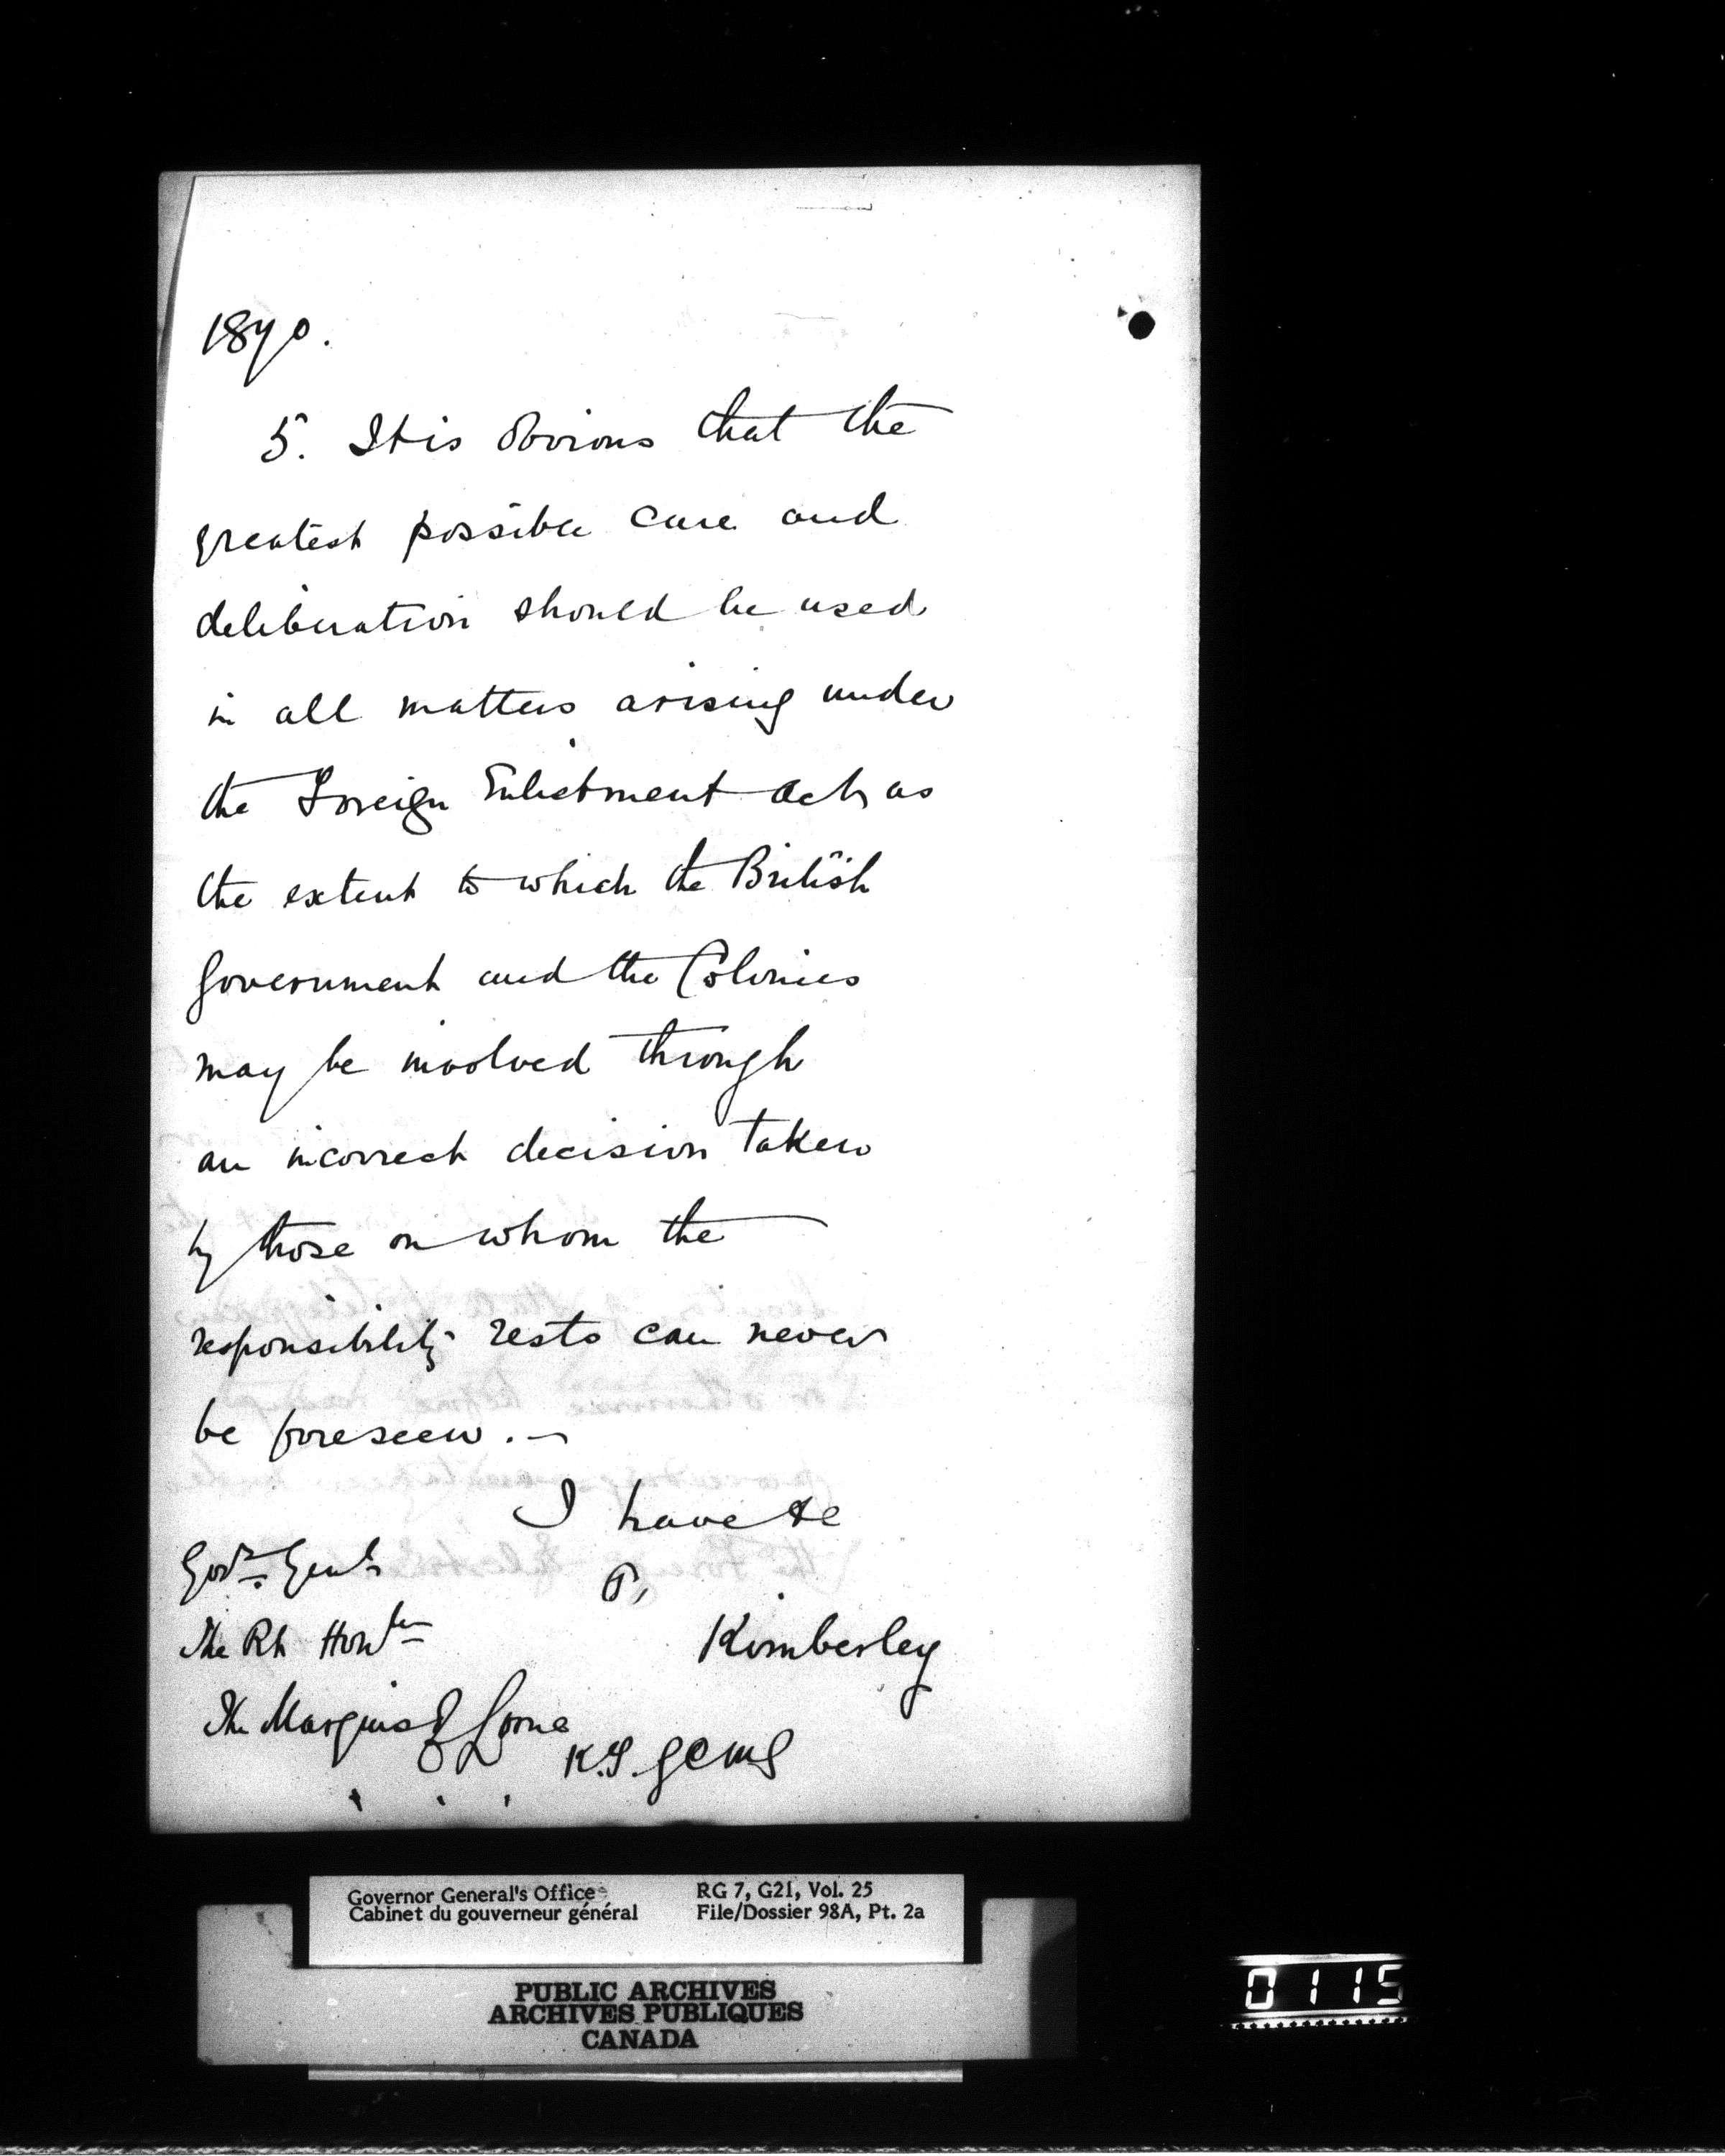 1870.
5. It is obvious that the
greatest possible care and
deliberation should be used
in all matters arising under
the Foreign Enlistment Act as
the extent to which the British
Government and the Colonies
may be involved through
an incorrect decision taken
by those on whom the
responsibility rests can never
be foreseen. —
I have &c
Govr. Genl.
The Rt Honble
Kimberley
The Marquis of Lorne
K.T. GCMG
Governor General's Office
Cabinet du gouverneur général
RG 7, G21, Vol. 25
File/Dossier 98A, Pt. 2a
PUBLIC ARCHIVES
ARCHIVES PUBLIQUES
CANADA
0115